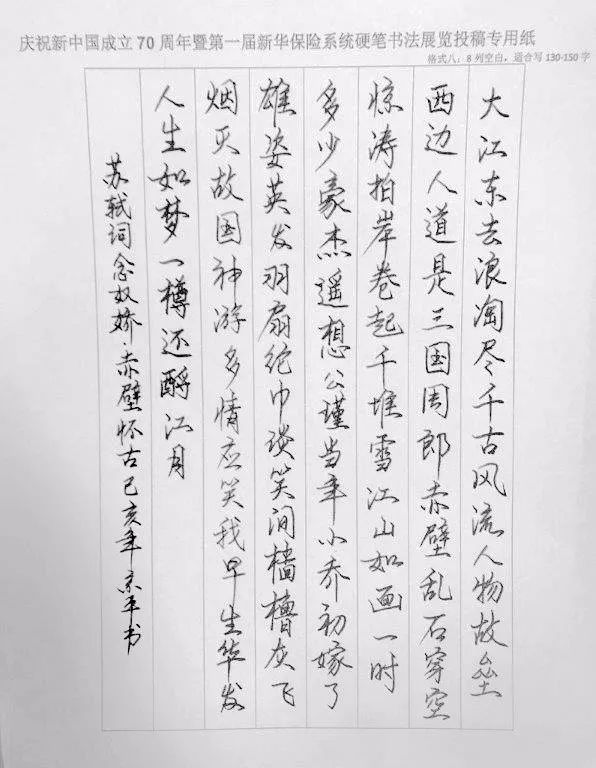 庆祝新中国成立70周年暨第一届新华保险系统硬笔书法展览投稿专用纸
格式八：8列空白，适合写130-150字
大江东去浪淘尽千古风流人物故垒
西边人道是三国周郎赤壁乱石穿空
惊涛拍岸卷起千堆雪江山如画一时
多少豪杰遥想公瑾当年小乔初嫁了
雄姿英发羽扇纶巾谈笑间樯橹灰飞
烟灭故国神游多情应笑我早生华发
人生如梦一樽还酹江月
苏轼词念奴娇·赤壁怀古己亥年平书